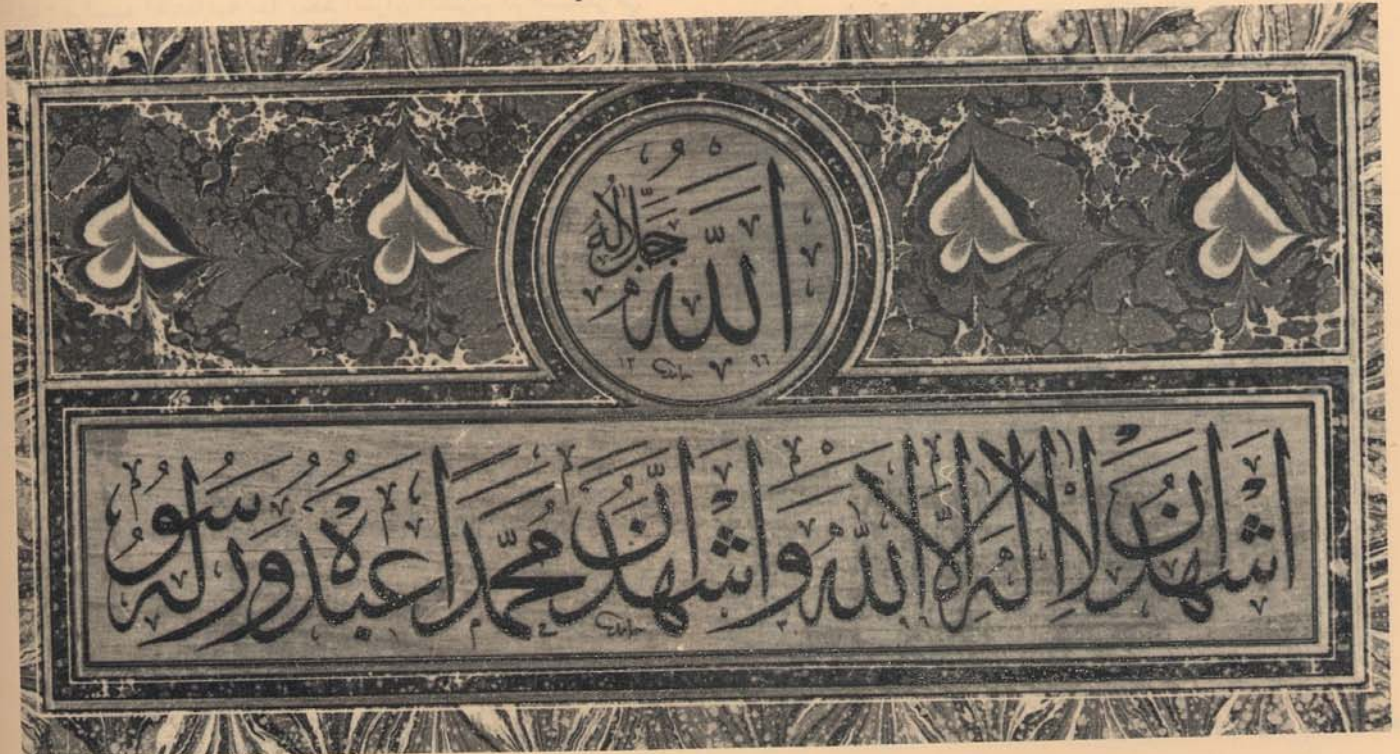 الله جل جلاله
١٢٩٦
حامد
اشهد ان لا اله الا الله واشهد ان محمدا عبده ورسوله
حامد